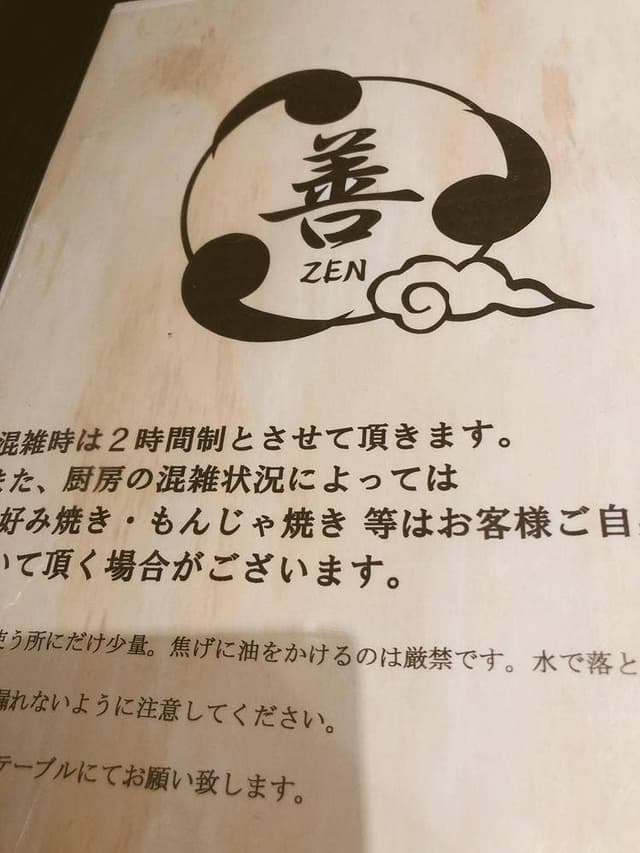 善
ZEN
混雑時は2時間制とさせて頂きます。
た、厨房の混雑状況によっては
好み焼き・もんじゃ焼き 等はお客様ご自
いて頂く場合がございます。
使う所にだけ少量。焦げに油をかけるのは厳禁です。水で落と
漏れないように注意してください。
テーブルにてお願い致します。